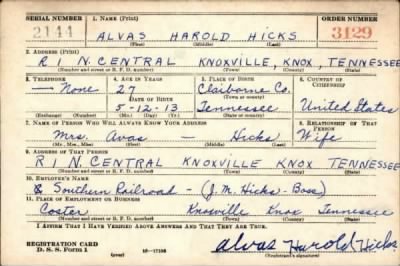 SERIAL NUMBER 1. NAME (Print) ORDER NUMBER
2144 ALVAS HAROLD HICKS 3129
(First) (Middle) (Last)
2. ADDRESS (Print)
R N. CENTRAL KNOXVILLE, KNOX, TENNESSEE
(Number and street or R. F. D. number) (Town) (County) (State)
3. TELEPHONE 4. AGE IN YEARS 5. PLACE OF BIRTH 6. COUNTRY OF CITIZENSHIP
— None 27 Claiborne Co.
DATE OF BIRTH (Town or county)
5-12-13 Tennessee United States
(Exchange) (Number) (Mo.) (Day) (Yr.) (State or country)
7. NAME OF PERSON WHO WILL ALWAYS KNOW YOUR ADDRESS 8. RELATIONSHIP OF THAT PERSON
Mrs. Avas — Hicks Wife
(Mr., Mrs., Miss) (First) (Middle) (Last)
9. ADDRESS OF THAT PERSON
R 1 N. CENTRAL KNOXVILLE KNOX TENNESSEE
(Number and street or R. F. D. number) (Town) (County) (State)
10. EMPLOYER'S NAME
& Southern Railroad - (J.M. Hicks - Boss)
11. PLACE OF EMPLOYMENT OR BUSINESS
Coster Knoxville Knox Tennessee
(Number and street or R. F. D. number) (Town) (County) (State)
I AFFIRM THAT I HAVE VERIFIED ABOVE ANSWERS AND THAT THEY ARE TRUE.
REGISTRATION CARD
D. S. S. Form 1 (over) 16-17105 Alvas Harold Hicks
(Registrant's signature)